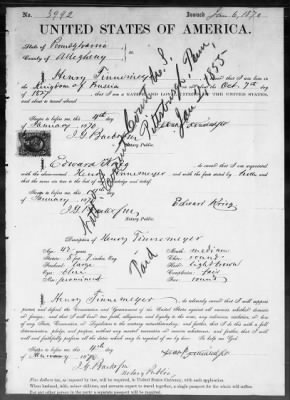 No. 3992 Issued Jan 6, 1870
UNITED STATES OF AMERICA.
State of Pennsylvania
County of Allegheny
I, Henry Tinnemeyer do swear that I am born in
the Kingdom of Prussia on or about the Oct. 7th
1827 that I am a NATURALIZED CITIZEN OF THE UNITED STATES, and
about to travel abroad
Sworn to before me, this 4th
day of
January 1870
Notary Public.
I, Edward König do swear that I am acquainted
with the above-named Henry Tinnemeyer and with the facts stated by
and that the same are true to the best of my knowledge and belief.
Sworn to before me, this
day of
January 1870
Edward König
Notary Public.
Naturalized
Court U. S.
Pittsburgh Penn
Jan 21 1855
Paid
Description of Henry Tinnemeyer
Age: 42 years Mouth: medium
Stature: 5 feet inches, Eng. Chin: round
Forehead: large Hair: light brown
Eyes: blue Complexion: fair
Nose: prominent Face: round
I, Henry Tinnemeyer do solemnly swear that I will support
protect and defend the Constitution and Government of the United States against all enemies, whether domestic
or foreign; and that I will bear true faith, allegiance and loyalty to the same, any ordinance, resolution, or law
of any State, Convention or Legislature to the contrary notwithstanding; and further, that I do this with a full
determination, pledge and purpose, without any mental reservation or evasion whatsoever; and further, that I will
well and faithfully perform all the duties which may be required of me by law: So help me God.
Sworn to before me, this 4th
day of
January 1870
Notary Public
Five dollars tax, as imposed by law, will be required, in United States Currency, with each application.
When husband, wife, minor children, and servants expect to travel together, a single passport for the whole will suffice.
For any other person in the party a separate passport will be required.